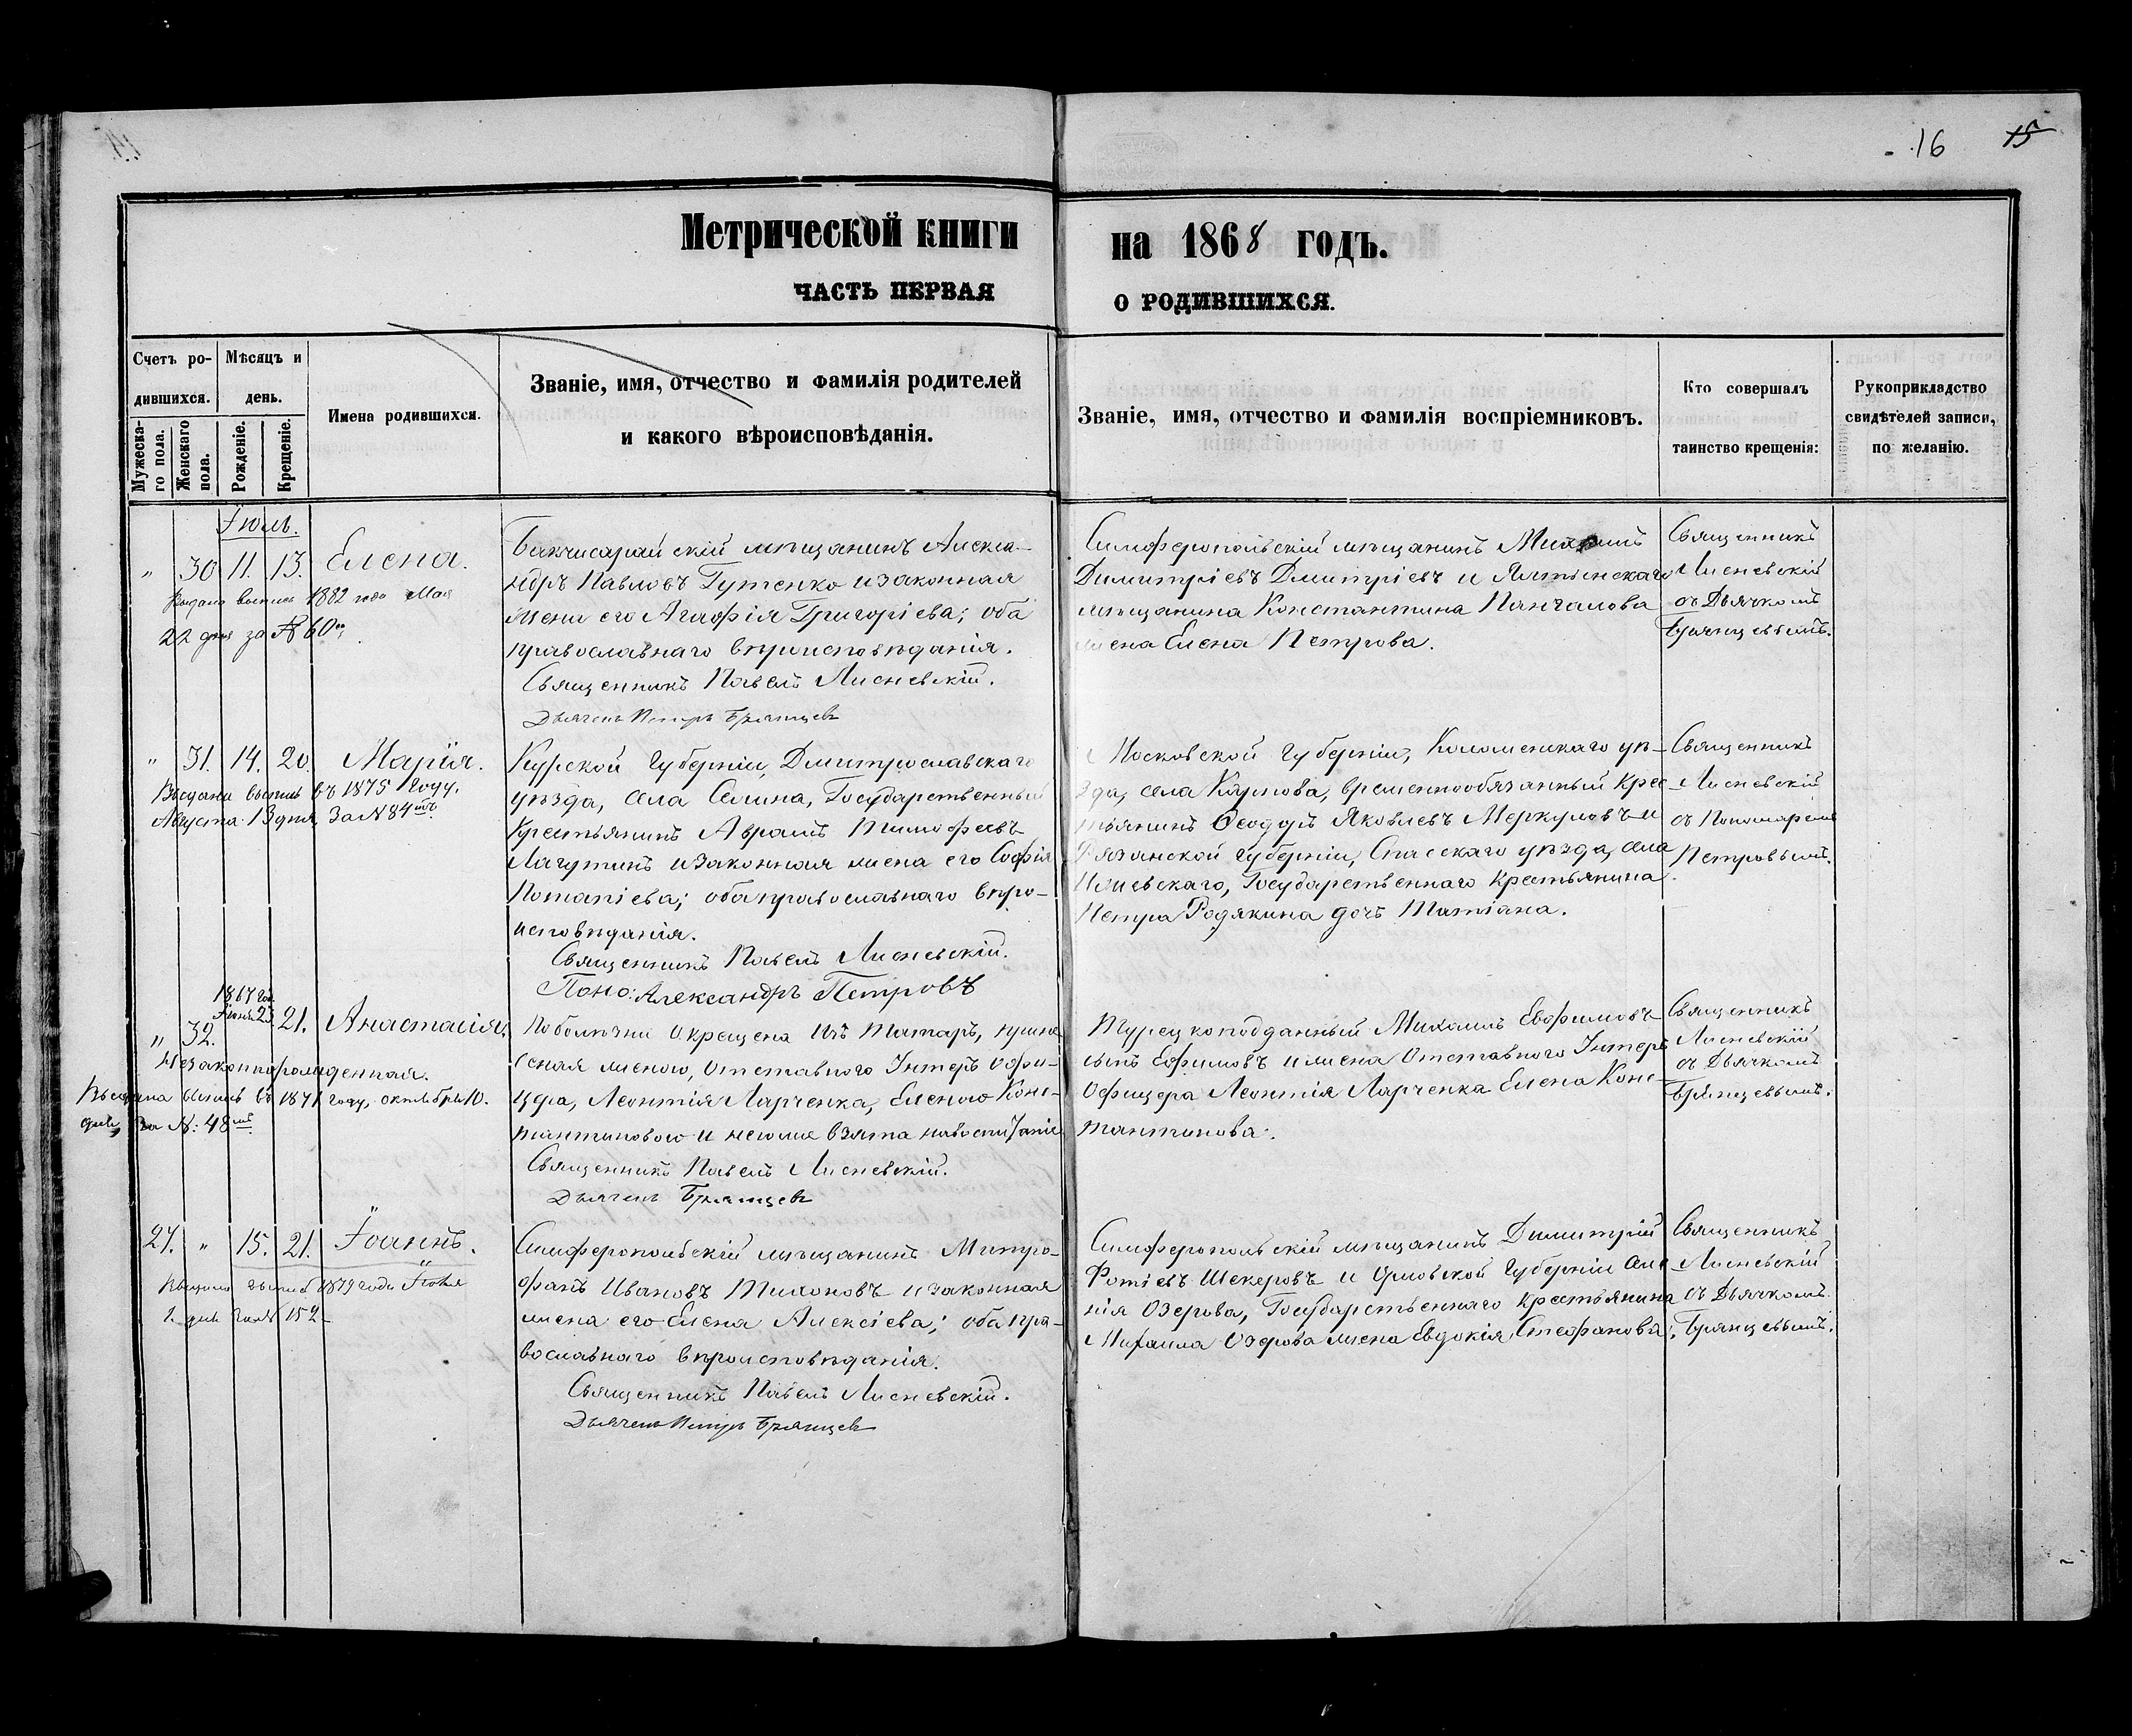 16 15
Метрической книги на 1868 годъ.
ЧАСТЬ ПЕРВАЯ О РОДИВШИХСЯ.
Счетъ ро-
дившихся.
Мужеска-
го пола.
Женскаго
пола.
Мѣсяцъ и
день.
Рожденіе.
Крещеніе.
Имена родившихся.
Званіе, имя, отчество и фамилія родителей
и какого вѣроисповѣданія.
Званіе, имя, отчество и фамилія воспріемниковъ.
Кто совершалъ
таинство крещенія:
Рукоприкладство
свидѣтелей записи,
по желанію.
Іюль.
" 30 11. 13. Елена.
Выдана выпись 1882 года Мая
22 дня за № 60
Бакчисарайскій мѣщанинъ Алекса-
ндръ Павловъ Гутенко и законная
жена его Агафія Григоріева; оба
православнаго вѣроисповѣданія.
Священникъ Павелъ Лисневскій.
Дьячекъ Петръ Брянцевъ
Симферопольскій мѣщанинъ Михаилъ
Димитріевъ Дмитріевъ и Ялтинскаго
мѣщанина Константина Панчалова
жена Елена Петрова.
Священникъ
Лисневскій
съ Дьячкомъ
Брянцевымъ.
" 31. 14. 20. Марія.
Выдана выпись въ 1875 году,
Августа 13 дня, За № 84
Курской губерніи, Дмитрославскаго
уѣзда, села Селина, Государственный
Крестьянинъ Аврамъ Тимофеевъ
Лагутинъ и законная жена его Софія
Потапіева; оба православнаго вѣро-
исповѣданія.
Священникъ Павелъ Лисневскій.
Поно: Александръ Петровъ
Московской губерніи, Коломенскаго уѣ-
зда, села Карпова, временнообязанный крес-
тьянинъ Ѳеодоръ Яковлевъ Меркуловъ и
Рязанской губерніи, Спасскаго уѣзда, села
Ижевскаго, Государственнаго крестьянина
Петра Родякина дочь Татіана.
Священникъ
Лисневскій
съ Пономаремъ
Петровымъ.
1867 год.
Іюня 23.
" 32. 21. Анастасія.
Незаконнорожденная.
Выдана выпись въ 1871 году, октября 10.
дня, За №: 48
По болѣзни окрещена изъ Татаръ, прине
сеная женою, Отставнаго Унтеръ Офи-
цера, Леонтія Ларченка, Еленою Конс-
тантиновою и нею же взята на воспитаніе
Священникъ Павелъ Лисневскій.
Дьячекъ Брянцевъ
Турецкоподданный Михаилъ Евфимовъ
сынъ Ефимовъ и жена Отставнаго Унтеръ
Офицера Леонтія Ларченка Елена Конс-
тантинова.
Священникъ
Лисневскій
съ Дьячкомъ
Брянцевымъ.
27. " 15. 21. Іоаннъ.
Выдана выпись 1879 года Іюня
2 дня за № 152
Симферопольскій мѣщанинъ Митро-
фанъ Ивановъ Тихоновъ и законная
жена его Елена Алексіева; оба пра-
вославнаго вѣроисповѣданія.
Священникъ Павелъ Лисневскій.
Дьячекъ Петръ Брянцевъ
Симферопольскій мѣщанинъ Димитрій
Фотіевъ Шекеровъ и Орловской губерніи селе
нія Озерова, Государственнаго крестьянина
Михаила Озерова жена Евдокія Стефанова.
Священникъ
Лисневскій
съ Дьячкомъ
Брянцевымъ.